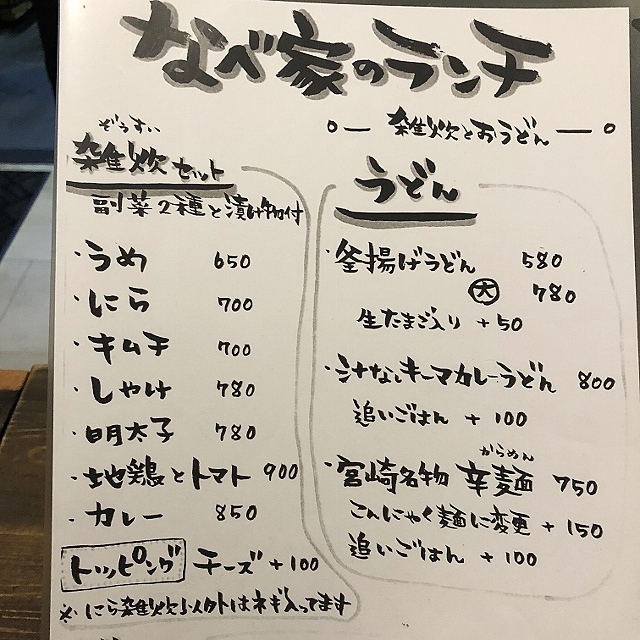 なべ家のランチ
雑炊とおうどん
ぞうすい
雑炊セット
副菜2種と漬け物付
・うめ 650
・にら 700
・キムチ 700
・しゃけ 780
・明太子 780
・地鶏とトマト 900
・カレー 850
トッピング チーズ +100
※にら雑炊以外はネギ入ってます
うどん
・釜揚げうどん 580
大 780
生たまご入り +50
・汁なしキーマカレーうどん 800
追いごはん +100
からめん
・宮崎名物 辛麺 750
こんにゃく麺に変更 +150
追いごはん +100